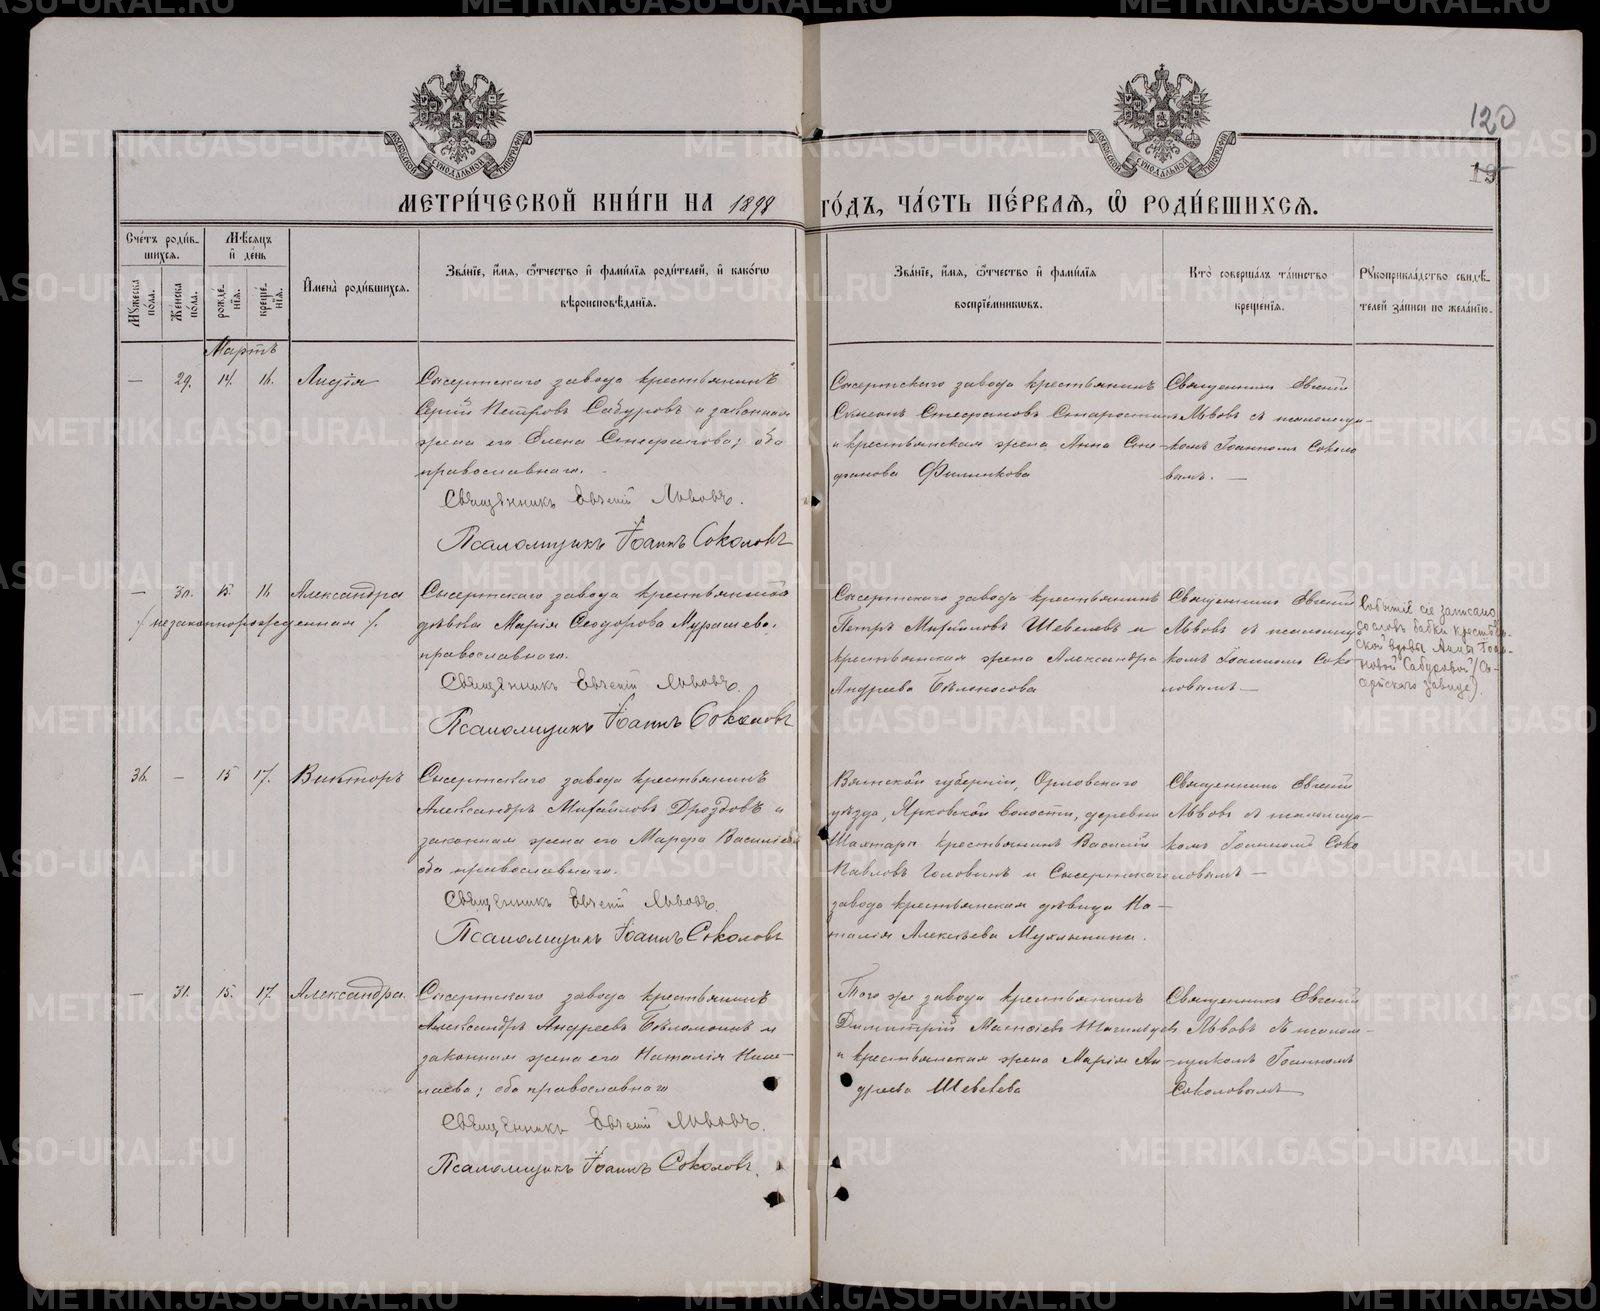 120
19
МОСКОВСКОЙ СѴНОДАЛЬНОЙ ТИПОГРАФІИ
МОСКОВСКОЙ СѴНОДАЛЬНОЙ ТИПОГРАФІИ
МЕТРИ́ЧЕСКОЙ КНИ́ГИ НА 1898 ГО́ДЪ, ЧА́СТЬ ПЕ́РВАЯ, Ѡ РОДИ́ВШИХСЯ.
Сче́тъ роди́в-
шихся.
Мꙋжеска по́ла.
Женска по́ла.
Мѣсяцъ и́ де́нь
рожде-нїя.
креще-нїя.
И҆мена̀ роди́вшихся.
Зва́нїе, и҆́мя, ѻ҆́тчество и҆ фами́лїя роди́телей, и҆ како́гѡ
вѣроисповѣ́данїя.
Зва́нїе, и҆́мя, ѻ҆́тчество и҆ фами́лїя
воспрїе́мникѡвъ.
Кто̀ соверша́лъ та́инство
креще́нїя.
Рꙋкоприкла́дство свидѣ́-
телей за́писи по жела́нїю.
Мартъ
— 29. 14. 16. Лидія
Сысертскаго завода крестьянинъ
Сергій Петровъ Сабуровъ и законная
жена его Елена Стефанова; оба
православнаго.
Священникъ Евгеній Львовъ.
Псаломщикъ Іоаннъ Соколовъ
Сысертскаго завода крестьянинъ
Симеонъ Стефановъ Старостинъ
и крестьянская жена Анна Сте-
фанова Филинкова
Священникъ Евгеній
Львовъ съ псаломщи-
комъ Іоанномъ Соколо
вымъ. —
— 30. 15. 16. Александра
/незаконнорожденная/.
Сысертскаго завода крестьянская
дѣвка Марія Ѳеодорова Мурашева,
православнаго.
Священникъ Евгеній Львовъ.
Псаломщикъ Іоаннъ Соколовъ
Сысертскаго завода крестьянинъ
Петръ Михайловъ Шевелевъ и
крестьянская жена Александра
Андреева Бѣлоносова
Священникъ Евгеній
Львовъ съ псаломщи
комъ Іоанномъ Соко
ловымъ —
Событіе сіе записано
со словъ бабки крестьян-
ской вдовы Анны
Сабуровой (Сы-
сертскаго завода).
36. — 15 17. Викторъ
Сысертскаго завода крестьянинъ
Александръ Михайловъ Дроздовъ и
законная жена его Марѳа Василіева
оба православнаго.
Священникъ Евгеній Львовъ.
Псаломщикъ Іоаннъ Соколовъ
Вятской губерніи, Орловскаго
уѣзда, Ярковской волости, деревни
Шахтары крестьянинъ Василій
Павловъ Головинъ и Сысертскаго
завода крестьянская дѣвица На-
талія Алексѣева Мухлынина.
Священникъ Евгеній
Львовъ съ псаломщи-
комъ Іоанномъ Соко
ловымъ —
— 31. 15. 17. Александра.
Сысертскаго завода крестьянинъ
Александръ Андреевъ Бѣломоинъ и
законная жена его Наталія Нико-
лаева; оба православнаго
Священникъ Евгеній Львовъ.
Псаломщикъ Іоаннъ Соколовъ.
Того же завода крестьянинъ
Димитрій
и крестьянская жена Марія Ан-
дреева Шевелева
Священникъ Евгеній
Львовъ съ псалом-
щикомъ Іоанномъ
Соколовымъ